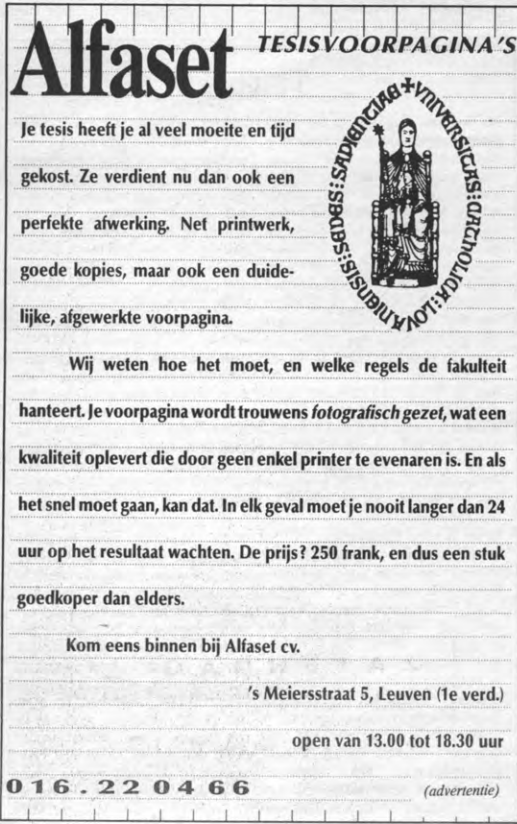 Alfaset
TESISVOORPAGINA'S
Je tesis heeft je al veel moeite en tijd
gekost. Ze verdient nu dan ook een
perfekte afwerking. Net printwerk,
goede kopies, maar ook een duide-
lijke, afgewerkte voorpagina.
SEDES : SAPIENTIAE + UNIVERSITAS : CATHOLICA : LOVANIENSIS :
Wij weten hoe het moet, en welke regels de fakulteit
hanteert. Je voorpagina wordt trouwens fotografisch gezet, wat een
kwaliteit oplevert die door geen enkel printer te evenaren is. En als
het snel moet gaan, kan dat. In elk geval moet je nooit langer dan 24
uur op het resultaat wachten. De prijs? 250 frank, en dus een stuk
goedkoper dan elders.
Kom eens binnen bij Alfaset cv.
's Meiersstraat 5, Leuven (1e verd.)
open van 13.00 tot 18.30 uur
016.220466
(advertentie)